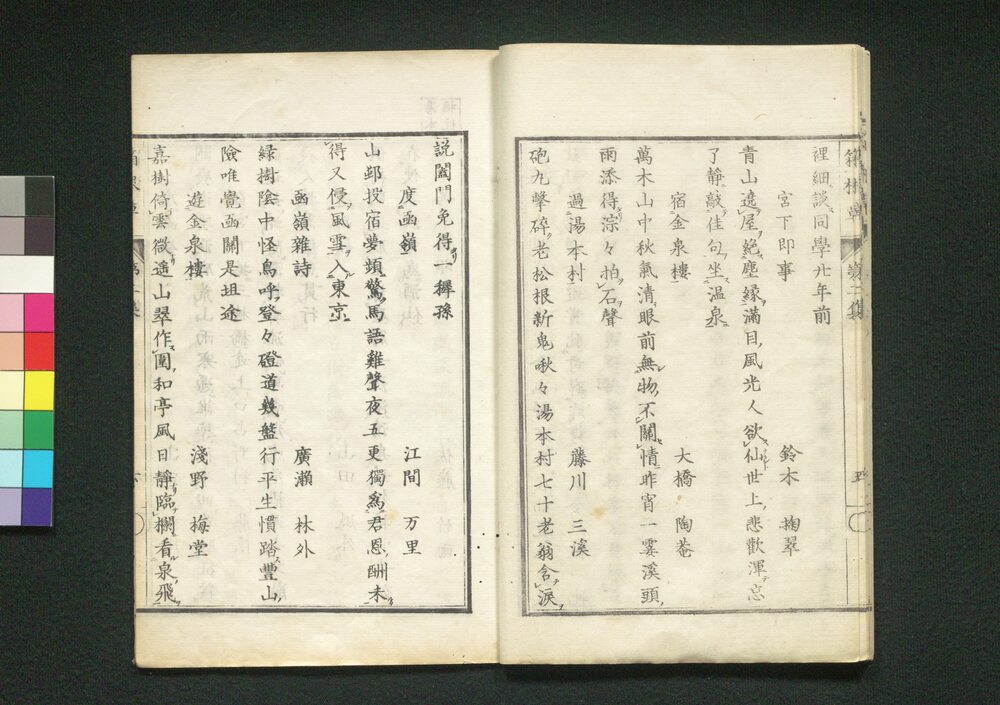 裡細談同學廿年前
宮下即事　　鈴木　掬翠
青山遶屋絶塵緣滿目風光人欲仙世上悲歡渾忘
了靜敲佳句坐溫泉
宿金泉樓　　大橋　陶菴
萬木山中秋氣清眼前無物不關情昨宵一霎溪頭
雨添得淙々拍石聲
過湯本村　　藤川　三溪
砲丸擊碎老松根新鬼啾々湯本村七十老翁含淚
說闔門免得一穉孫
度函嶺　　江間　万里
山郵投宿夢頻驚馬語雞聲夜五更獨爲君恩酬未
得又侵風雪入東京
函嶺雜詩　　廣瀨　林外
綠樹陰中怪鳥呼登々磴道幾盤行平生慣踏豐山
險唯覺函關是坦途
遊金泉樓　　淺野　梅堂
嘉樹倚雲微遥山翠作圍和亭風日靜臨欄看泉飛